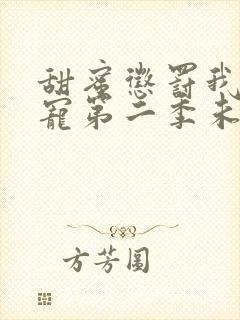 甜蜜懲罰我
寵第二季未
方芳圓